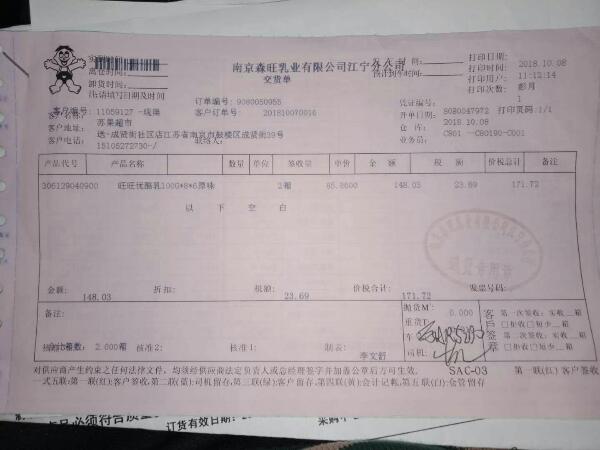 南京森旺乳业有限公司江宁分公司
交货单
离仓时间:
卸货时间:
打印日期: 2018.10.08
打印时间: 11:12:14
打印用户: 彭月
打印次数: 1
订单编号: 9080050955
客户订单号: 201810070016
凭证编号: 8080047972 打印页码:1/1
开单日期: 2018.10.08
仓 库: C801 --C80190-C001
业务员:
客户编号: 11059127
客户名称: 苏果超市
客户地址: 送-成贤街社区店江苏省南京市鼓楼区成贤街39号
客户电话: 15105272730-/ 联络人:
产品代号 产品名称 数量 单位 签收量 单价 金 额 税 额 价税总计 备注
306129040900 旺旺优酪乳100G*8*6原味 2箱 85.8600 148.03 23.69 171.72
以 下 空 白
金额: 148.03 折扣: 税额: 23.69 价税合计: 171.72 发票号码:
备注:
抛货M³ 0.000
重货T:
车
司机:
客户签章
第一次签收: 实收__箱
□拒收□短少__箱
第二次签收: 实收__箱
□拒收□短少__箱
合计箱数: 2.000箱 核准2: 核准1: 制表: 李文舒
SAC-03 第一联(红) 客户签收
对供应商产生约束之任何法律文件，均须经供应商法定负责人或总经理签字并加盖公章后方可生效。
一式五联:第一联(红):客户签收,第二联(蓝):司机留存,第三联(绿):客户留存,第四联(黄):会计记帐,第五联(白):仓管留存
品必须符合质量
订货有效日期: 20
采购中